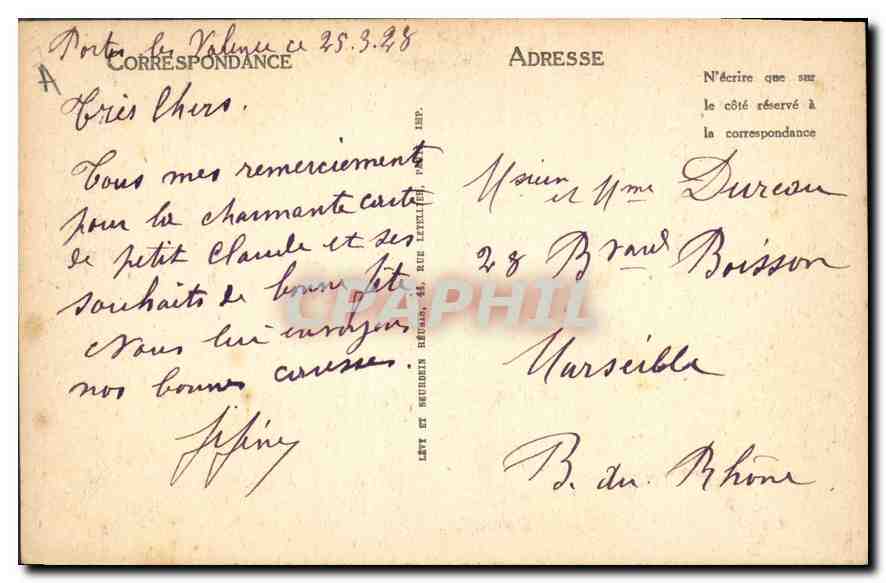 Portes les Valence ce 25.3.28
CORRESPONDANCE
A
Très Chers.
Tous mes remerciement
pour la charmante carte
de petit Claude et ses
souhaits de bonne fête.
Nous lui envoyons
nos bonnes caresses.
LÉVY ET NEURDEIN RÉUNIS, 44, RUE LETELLIER, PARIS IMP.
ADRESSE
N'écrire que sur
le côté réservé à
la correspondance
Msieur et Mme Dureau
28 Bvard Boisson
Marseille
B. du Rhône
CPAPHIL